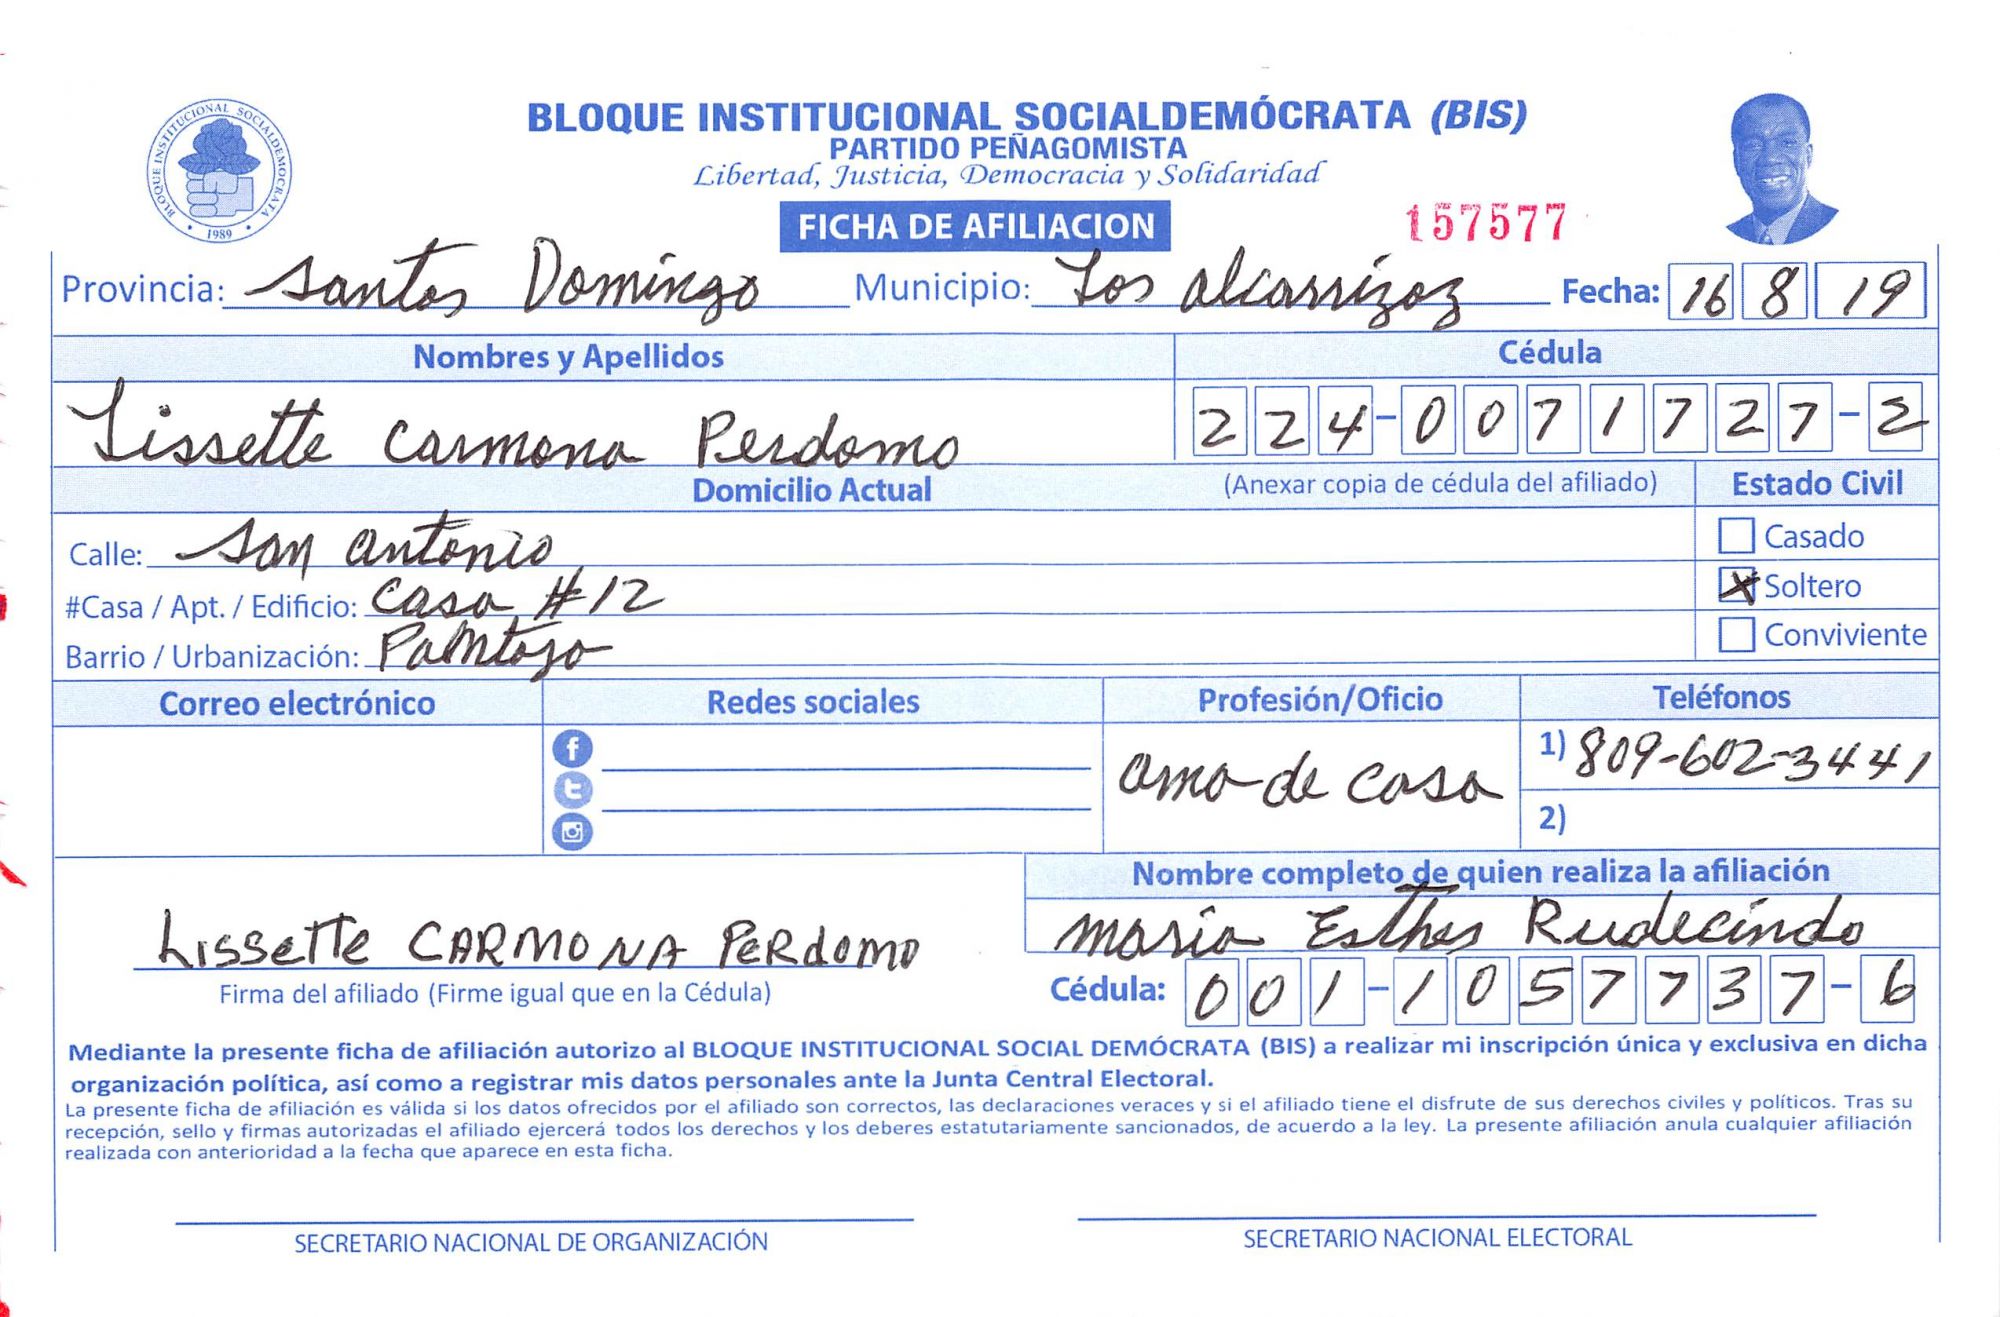 BLOQUE INSTITUCIONAL SOCIALDEMÓCRATA (BIS)
PARTIDO PEÑAGOMISTA
Libertad, Justicia, Democracia y Solidaridad
BLOQUE INSTITUCIONAL SOCIALDEMOCRATA
1989
FICHA DE AFILIACION
157577
Provincia: Santos Domingo Municipio: Los alcarrizoz Fecha: 16 8 19
Nombres y Apellidos Cédula
Lissette Carmona Perdomo 224-0071727-2
Domicilio Actual (Anexar copia de cédula del afiliado) Estado Civil
Calle: San antonio Casado
#Casa / Apt. / Edificio: Casa #12 X Soltero
Barrio / Urbanización: Conviviente
Correo electrónico Redes sociales Profesión/Oficio Teléfonos
ama de casa 1) 809-602-3441
2)
Nombre completo de quien realiza la afiliación
Lissette CARMONA PERdomo maria Esther Rudecindo
Firma del afiliado (Firme igual que en la Cédula) Cédula: 001-1057737-6
Mediante la presente ficha de afiliación autorizo al BLOQUE INSTITUCIONAL SOCIAL DEMÓCRATA (BIS) a realizar mi inscripción única y exclusiva en dicha
organización política, así como a registrar mis datos personales ante la Junta Central Electoral.
La presente ficha de afiliación es válida si los datos ofrecidos por el afiliado son correctos, las declaraciones veraces y si el afiliado tiene el disfrute de sus derechos civiles y políticos. Tras su
recepción, sello y firmas autorizadas el afiliado ejercerá todos los derechos y los deberes estatutariamente sancionados, de acuerdo a la ley. La presente afiliación anula cualquier afiliación
realizada con anterioridad a la fecha que aparece en esta ficha.
SECRETARIO NACIONAL DE ORGANIZACIÓN SECRETARIO NACIONAL ELECTORAL